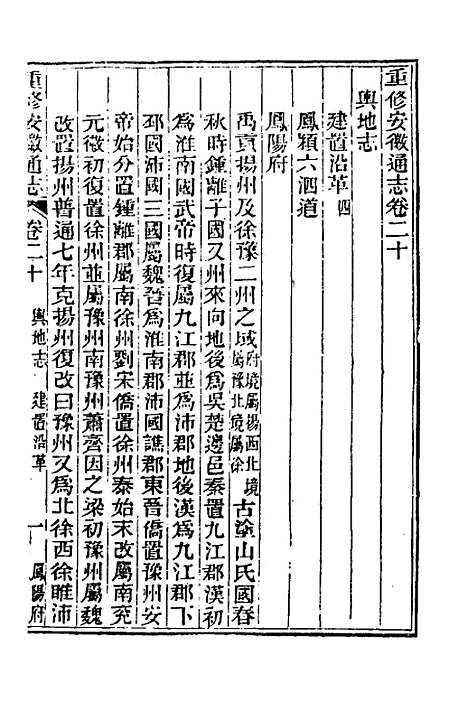 重修安徽通志卷二十
輿地志
建置沿革四
鳳潁六泗道
鳳陽府
禹貢揚州及徐豫二州之域府境屬揚西北境屬豫北境屬徐古塗山氏國春
秋時鍾離子國又州來向地後爲吳楚邊邑秦置九江郡漢初
爲淮南國武帝時復屬九江郡並爲沛郡地後漢爲九江郡下
邳國沛國三國屬魏晉爲淮南郡沛國譙郡東晉僑置豫州安
帝始分置鍾離郡屬南徐州劉宋僑置徐州泰始末改屬南兖
元徽初復置徐州並屬豫州南豫州蕭齊因之梁初豫州屬魏
改置揚州普通七年克揚州復改曰豫州又爲北徐西徐睢沛
重修安徽通志
卷二十
輿地志
建置沿革
一
鳳陽府